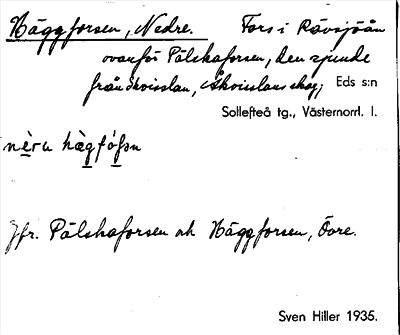 Häggforsen, Nedre. Fors i Rävsjöån
ovanför Pälskaforsen, den sjunde
från åkvisslan, Åkvisslans skog, Eds s:n
Sollefteå tg., Västernorrl. l.
nèru hàgfófsn
Jfr. Pälskaforsen och Häggforsen, Övre.
Sven Hiller 1935.